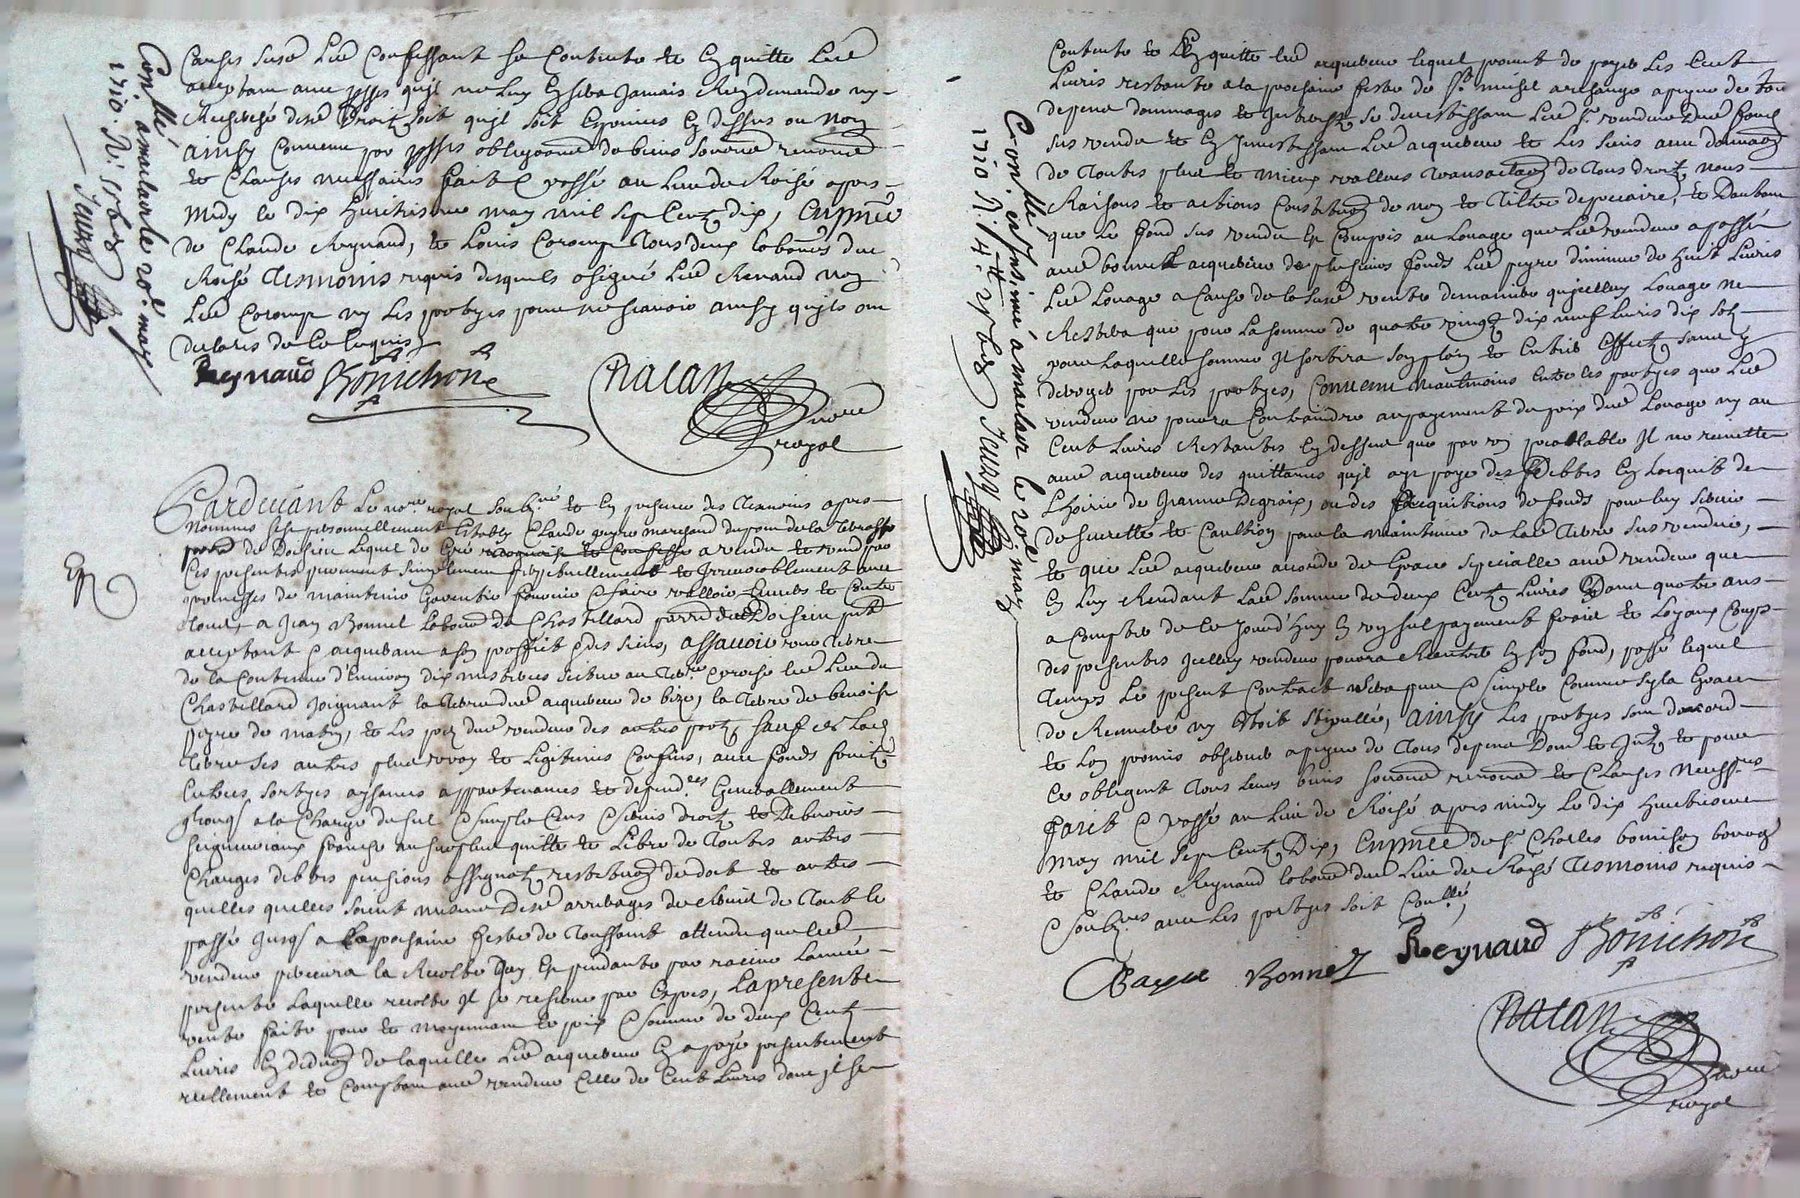 Causes susd Led Confessant se Contente et En quitte Led
acceptant avec pacte quil ne luy En sera Jamais Rien demandé ny
Recherché desd droits soit quil soit Exprimés Cy dessus ou Non
ainsy Convenu par pactes obligaond de biens soumd renond
et Clauses necessaires fait & passé au lieu de Roisé apres
midy le dix huictiesme may mil sept Centz dix, En pnce
de Claude Reynaud, et Louis Coromp Tous deux labours dud
Roisé Tesmoins requis desquels a signé Led Renaud non
Led Coromp ny les partyes pour ne scavoir ainsy quils ont
declarés de Ce Enquis
Reynaud Bonichon
Chalan
nore
royal
Conllé a maclas le 20e may
1710. R.
Jaury
Pardevant Le nore royal Soubné et En presence des Tesmoins apres
Nommes fust personnellement Estably Claude peyre marchand du
parre de Doisieu Lequel de Gré a vendu et vend par
Ces presentes purement simplement perpetuellement et Irrevocablement avec
promesses de maintenir Garentir fournir & faire valloir Envers et Contre
Tous, a Jean Bonnet laboud de Chastillard parre dud Doisieu pnt
acceptant & acquerant a son proffict & des siens, assavoir une Terre
de la Contenue d'Environ dix mesures Scitue au Terre & proche led Lieu du
Chastillard Joignant la Terre dud acquereur de bize, la Terre de benoist
peyre de matin, et les pred dud vendeur des autres parts, sauf de lad
Terre ses autres plus vray et Legitimes Confins, avec fonds fruitz
Entrées sortyes aysances appartenances et depend.ces Generallement
quelconqs a la Charge du seul & simple Cens & servis droitz et Debvoirs
seigneuriaux franche au surplus quitte et Libre de Toutes autres
Charges debtes pensions assignatz restrictions de dot et autres
quelles quelles soient mesme desd arrerages de servis de Tout le
passé Jusqs a La prochaine feste de Toussaint attendu que led
vendeur percevra la Recolte En pendante par racine Lannée
presente Laquelle recolte Il se reserve par Expres, La presente
vente faite pour et moyennant le prix & somme de deux Centz
Livres En deduon de laquelle Led acquereur En a payé presentement
reellement et Comptant aud vendeur Celle de Cent Livres dont il se
Contente et En quitte led acquereur lequel promet de payer les Cent
Livres restante a la prochaine feste de St michel archange a peyne de tous
depens dommages et Interests, se devestissant Led Sr. vendeur Dud fond
sus vendu et En Investissant Led acquereur et Les siens avec donnaon
de Toutes plus et mieux vallues Transactions de Tous droitz noms
Raisons et actions Constitution de nom et Tiltre deprecaire, et Dautant
que Le fond sus vendu Est Compris au Louage que Led vendeur a passé
aud bonnet acquereur de plusieurs fonds Led peyre diminue de huit Livres
Led Louage a Cause de la susd vente demaniere qu'icelluy Louage ne
Restera que pour La somme de quatre vingtz dix neuf Livres dix solz
pour Laquelle somme Il sortira son plein et Entier Effect, sans y
deroger par les partyes, Convenu neantmoins Entre les partyes que Led
vendeur ne pourra Contraindre au payement du prix dud Louage ny au
Cent Livres Restantes Cy dessus que par un prealable Il ne remette
aud acquereur des quittances quil aye payé des debtes En lacquit de
Lhoirie de Jeanne Degraix, ou des acquisitions de fonds pour luy servir
de surette et Caultion pour la maintenue de lad Terre sus vendue,
et que Led acquereur accorde de Grace specialle aud vendeur que
En luy Rendant Lad somme de deux Centz Livres Dans quatre ans
a Compter de Ce Jourd'huy En un seul payement frais et Loyaux Coups
des presentes Icelluy vendeur pourra Rentrer En son fond, passé lequel
Temps Le present Contract sera pur & simple Comme si la Grace
de Remeré ny Estoit stipullée, ainsy les partyes sont daccord
et Lon promis observer a peyne de Tous depens Dom et Intz et pour
Ce obligent Tous leurs biens soumd renond et Clauses necessres
fait & passé au lieu de Roisé apres midy Le dix huictiesme
may mil sept Centz Dix, En pnce de Sr Charles bonichon bourgs
et Claude Reynaud laboud dud Lieu de Roisé Tesmoins requis
& Soubnes avec les partyes soit Conllé
Bayle Bonnet Reynaud Bonichon
Chalan
nore
royal
Conllé et Insinué a maclas le 20e may
1710 R.
Jaury